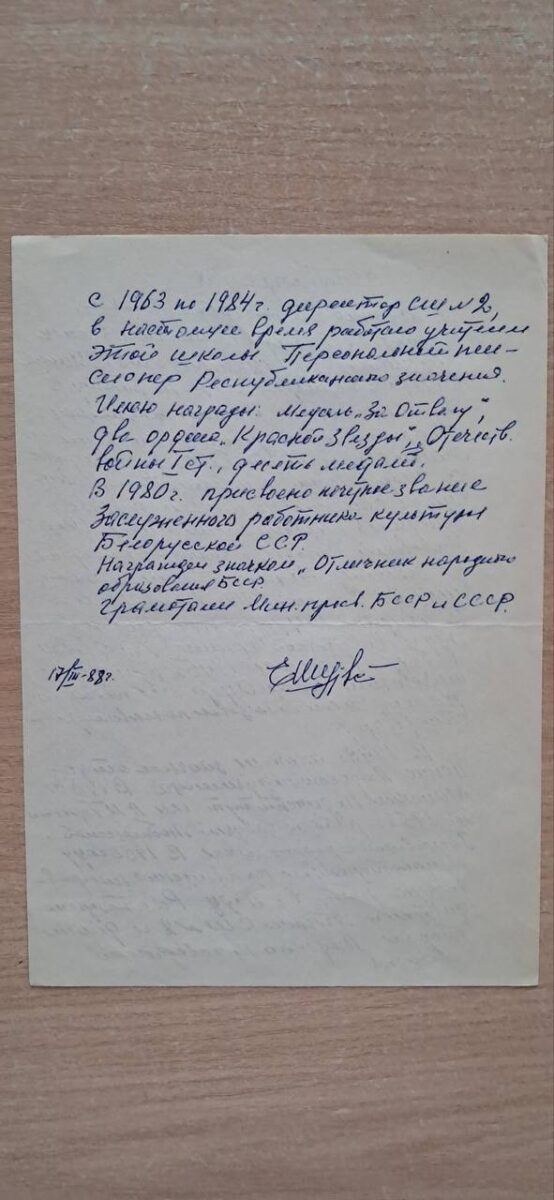 С 1963 по 1984 г. директор СШ № 2,
в настоящее время работаю учителем
этой школы. Персональный пен-
сионер Республиканского значения.
Имею награды: медаль „За Отвагу",
два ордена „Красной Звезды", Отечеств.
войны I ст., десять медалей.
В 1980 г. присвоено почетное звание
Заслуженного работника культуры
Белорусской ССР.
Награжден значком „Отличник народного
образования БССР
Грамотами Мин. просв. БССР и СССР.
17/III-88 г.